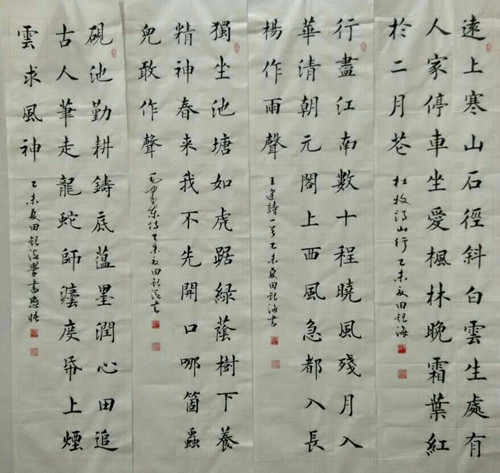 遠上寒山石徑斜白雲生處有
人家停車坐愛楓林晚霜葉紅
於二月花
杜牧詩山行乙未夏田記海
行盡江南數十程曉風殘月入
華清朝元閣上西風急都入長
楊作雨聲
王建詩一首乙未夏田記海書
獨坐池塘如虎踞綠蔭樹下養
精神春來我不先開口哪箇蟲
兒敢作聲
毛澤東詩乙未夏田記海書
硯池勤耕鑄底蘊墨潤心田追
古人筆走龍蛇師灋度帋上煙
雲求風神
乙未夏田記海學書感悟